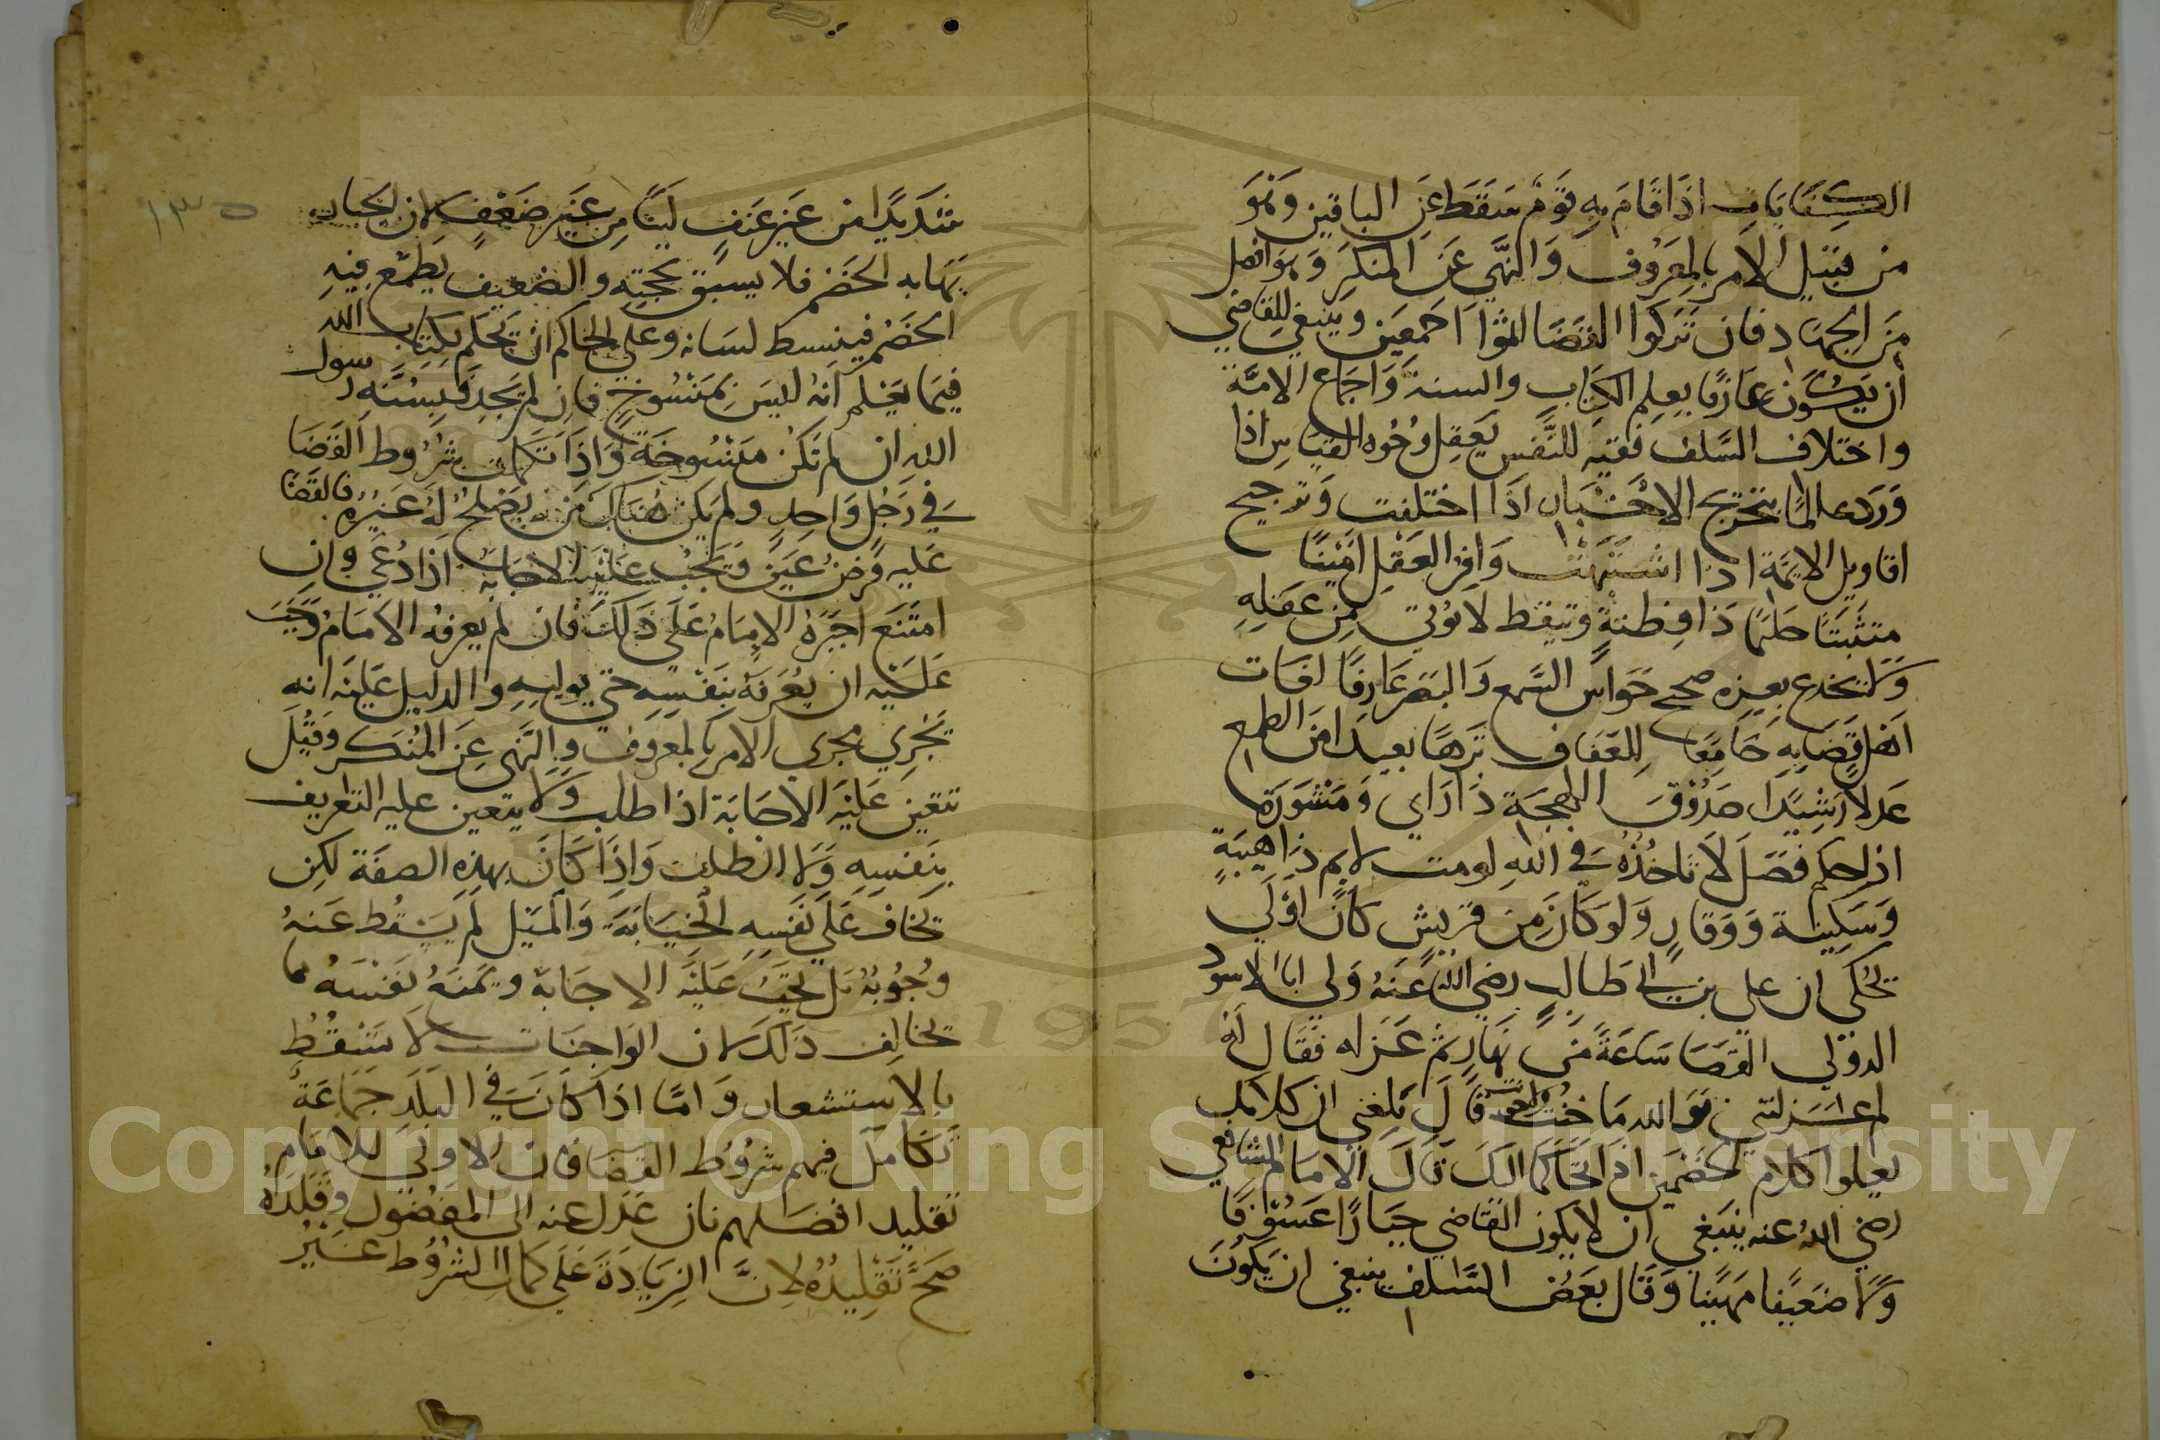 الكفايات اذا قام به قوم سقط عن الباقين وهو
من قبيل الامر بالمعروف والنهي عن المنكر وهو افضل
من الجهاد فان تركوا القضا اثموا اجمعين وينبغي للقاضي
ان يكون عارفا بعلم الكتاب والسنة واجماع الامة
واختلاف السلف فقيه للنفس يعقل وجوه القياس اذا
ورد عالما بتخريج الاخبار اذا اختلفت وترجيح
اقاويل الايمة اذا اشتبهت وافر العقل امينا
متثبتا حلما ذا فطنة وتيقظ لا يوتي من عقله
ولا يخدع بعزه صحيح حواس السمع والبصر عارفا لغات
اهل قضايه جامعا للعفاف نزها بعيدا من الطمع
عدلا رشيدا صدوق اللهجة ذا راي ومشورة
اذا حكم فصل لا تاخذه في الله لومت لايم ذا هيبة
وسكينة ووقار ولو كان من قريش كان اولي
يحكى ان علي بن ابي طالب رضي الله عنه ولي ابا الاسود
الدولي القضا ساعة من نهار ثم عزله فقال له
لم عزلتني فو الله ما خنت قال بلغني ان كلامك
يعلوا كلام الخصمين اذا تحاكما اليك قال الامام الشافعي
رضي الله عنه ينبغي ان لا يكون القاضي جبارا عسوفا
ولا ضعيفا مهينا وقال بعض السلف ينبغي ان يكون
١٣٥
شديدا من غير عنف لينا من غير ضعف لان الجبار
يهابه الخصم فلا يسبق بحجته والضعيف يطمع فيه
الخصم فينبسط لسانه وعلي الحاكم ان يحكم بكتاب الله
فيما يعلم انه ليس بمنسوخ فان لم يجد فبسنه رسول
الله ان لم تكن منسوخة واذا تكملت شروط القضا
في رجل واحد ولم يكن هناك من يصلح له غيره فالقضا
عليه فرض عين وتجب عليه الاجابة اذا دعي وان
امتنع اجبره الامام علي ذلك فان لم يعرفه الامام وجب
عليه ان يعرفه بنفسه حتي يوليه والدليل علينه انه
يجري مجري الامر بالمعروف والنهي عن المنكر وقيل
تتعين عليه الاجابة اذا طلب ولا يتعين عليه التعريف
بنفسه ولا الطلب واذا كان بهذه الصفة لكن
يخاف علي نفسه الخيانة والميل لم يسقط عنه
وجوبه بل يجب عليه الاجابة ويمنع نفسه مما
يخالف ذلك لان الواجبات لا تسقط
بالاستشعار واما اذا كان في البلد جماعة
تكامل فيهم شروط القضا فان الاولي للامام
تقليد افضلهم فان عدل عنه الى المفضول وقلده
صح تقليده لان الزيادة علي كمال الشروط غير
Copyright © King Saud University
1957